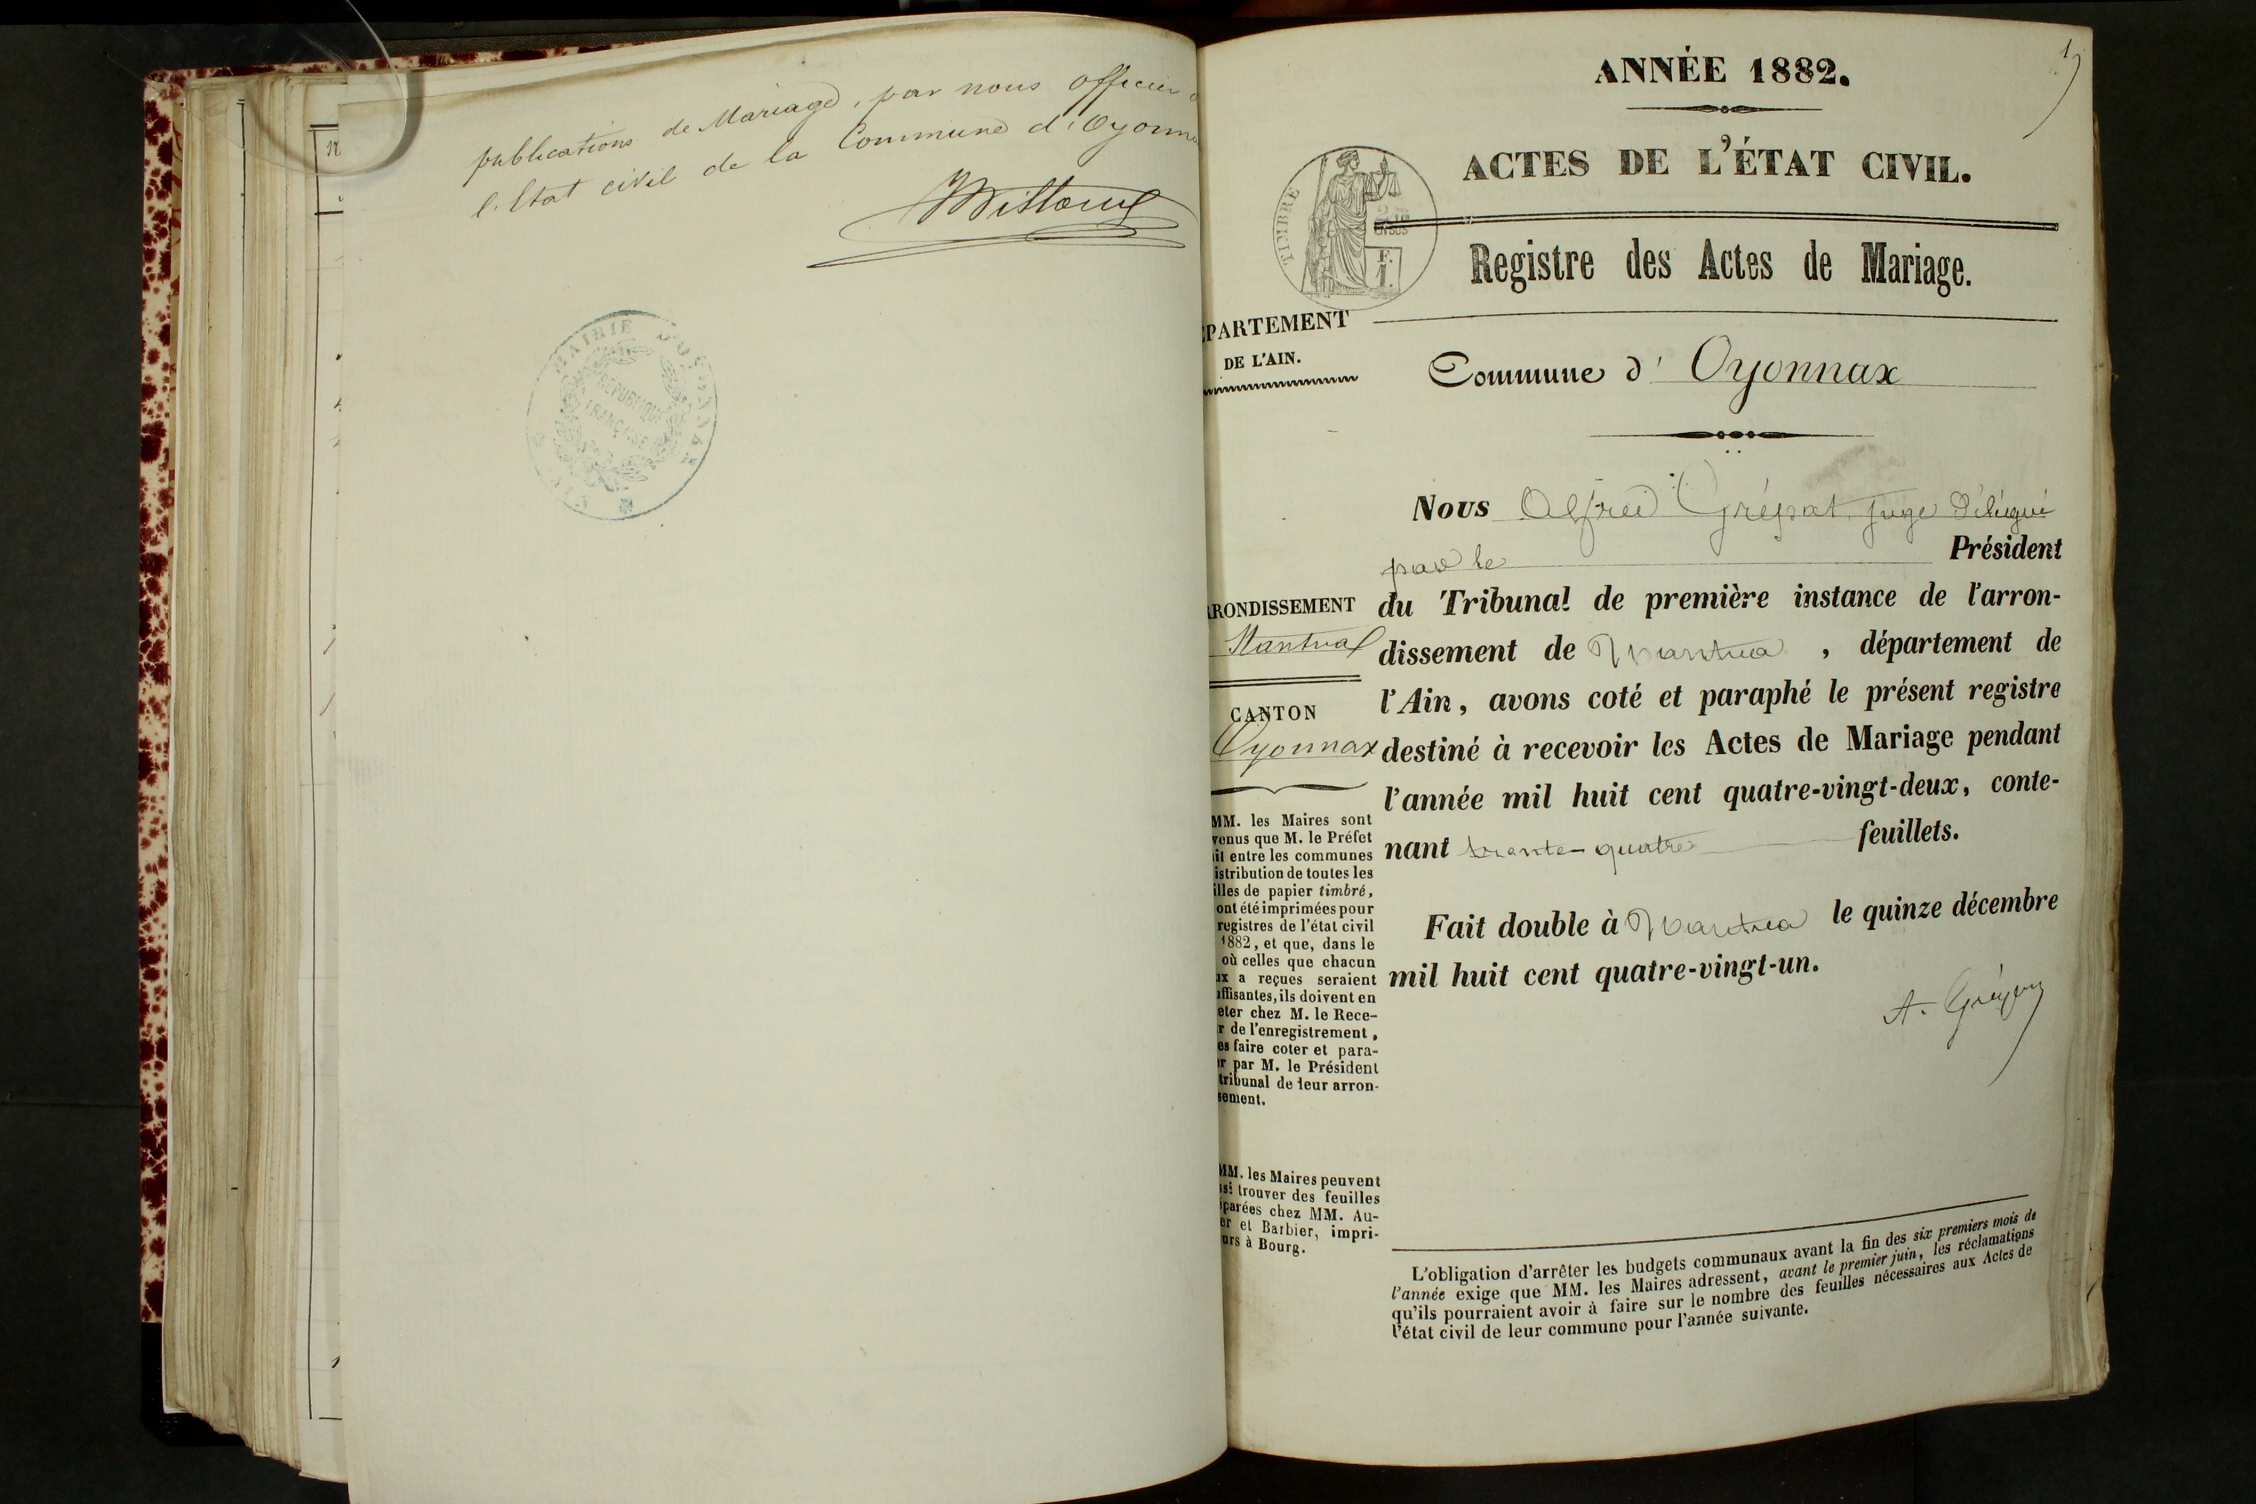 publications de Mariage, par nous officier
l'Etat civil de la Commune d'Oyonna
MAIRIE D'OYONNAX
RÉPUBLIQUE
FRANÇAISE
AIN
ANNÉE 1882.
1
ACTES DE L'ÉTAT CIVIL.
TIMBRE
Registre des Actes de Mariage.
PARTEMENT
DE L'AIN.
Commune d' Oyonnax
Nous Alfred juge délégué
par le Président
du Tribunal de première instance de l'arron-
dissement de Mantua, département de
l'Ain, avons coté et paraphé le présent registre
destiné à recevoir les Actes de Mariage pendant
l'année mil huit cent quatre-vingt-deux, conte-
nant quatre feuillets.
Fait double à Mantua le quinze décembre
mil huit cent quatre-vingt-un.
RRONDISSEMENT
Nantua
CANTON
Oyonnax
MM. les Maires sont
venus que M. le Préfet
it entre les communes
istribution de toutes les
illes de papier timbré,
ont été imprimées pour
registres de l'état civil
1882, et que, dans le
où celles que chacun
ux a reçues seraient
uffisantes, ils doivent en
eter chez M. le Rece-
r de l'enregistrement,
es faire coter et para-
r par M. le Président
tribunal de leur arron-
sement.
MM. les Maires peuvent
ssi trouver des feuilles
éparées chez MM. Au-
er et Barbier, impri-
urs à Bourg.
L'obligation d'arrêter les budgets communaux avant la fin des six premiers mois de
l'année exige que MM. les Maires adressent, avant le premier juin, les réclamations
qu'ils pourraient avoir à faire sur le nombre des feuilles nécessaires aux Actes de
l'état civil de leur commune pour l'année suivante.